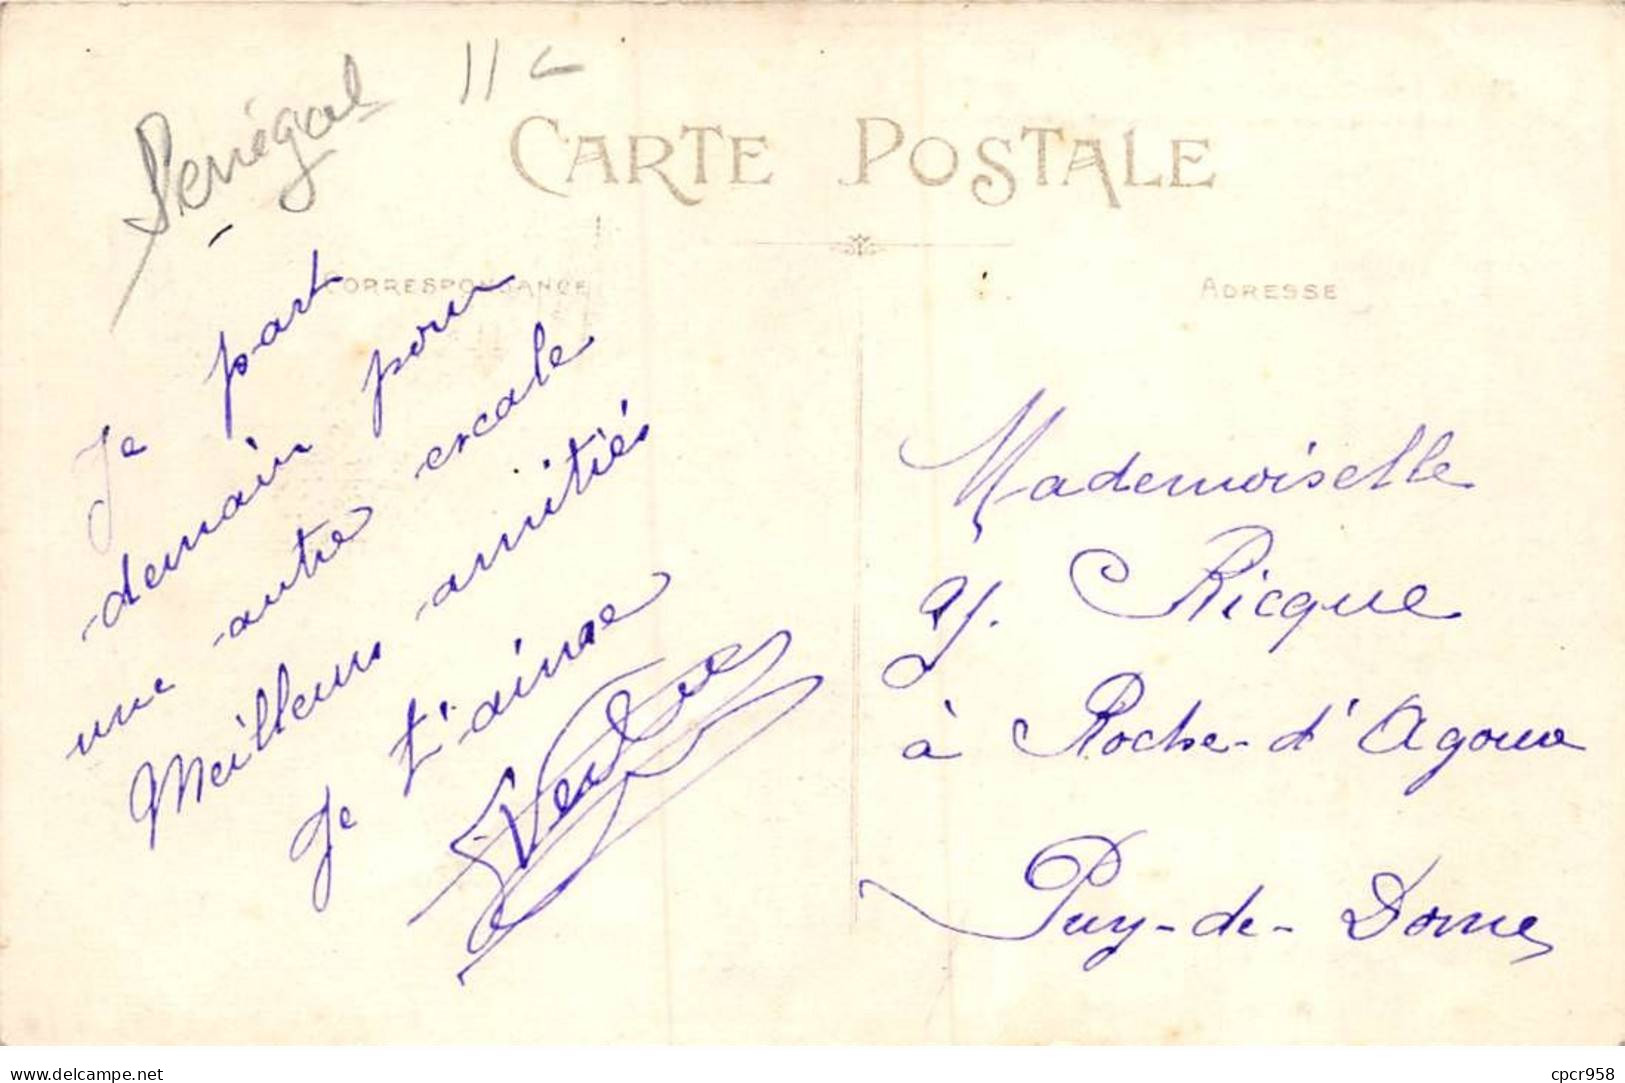 Sénégal 11
CARTE POSTALE
CORRESPONDANCE
ADRESSE
Je part
demain pour
une autre escale
Meilleurs amitiés
Je t'aime
Mademoiselle
Y. Ricque
à Roche-d'Agoux
Puy-de-Dome
www.delcampe.net
cpcr958